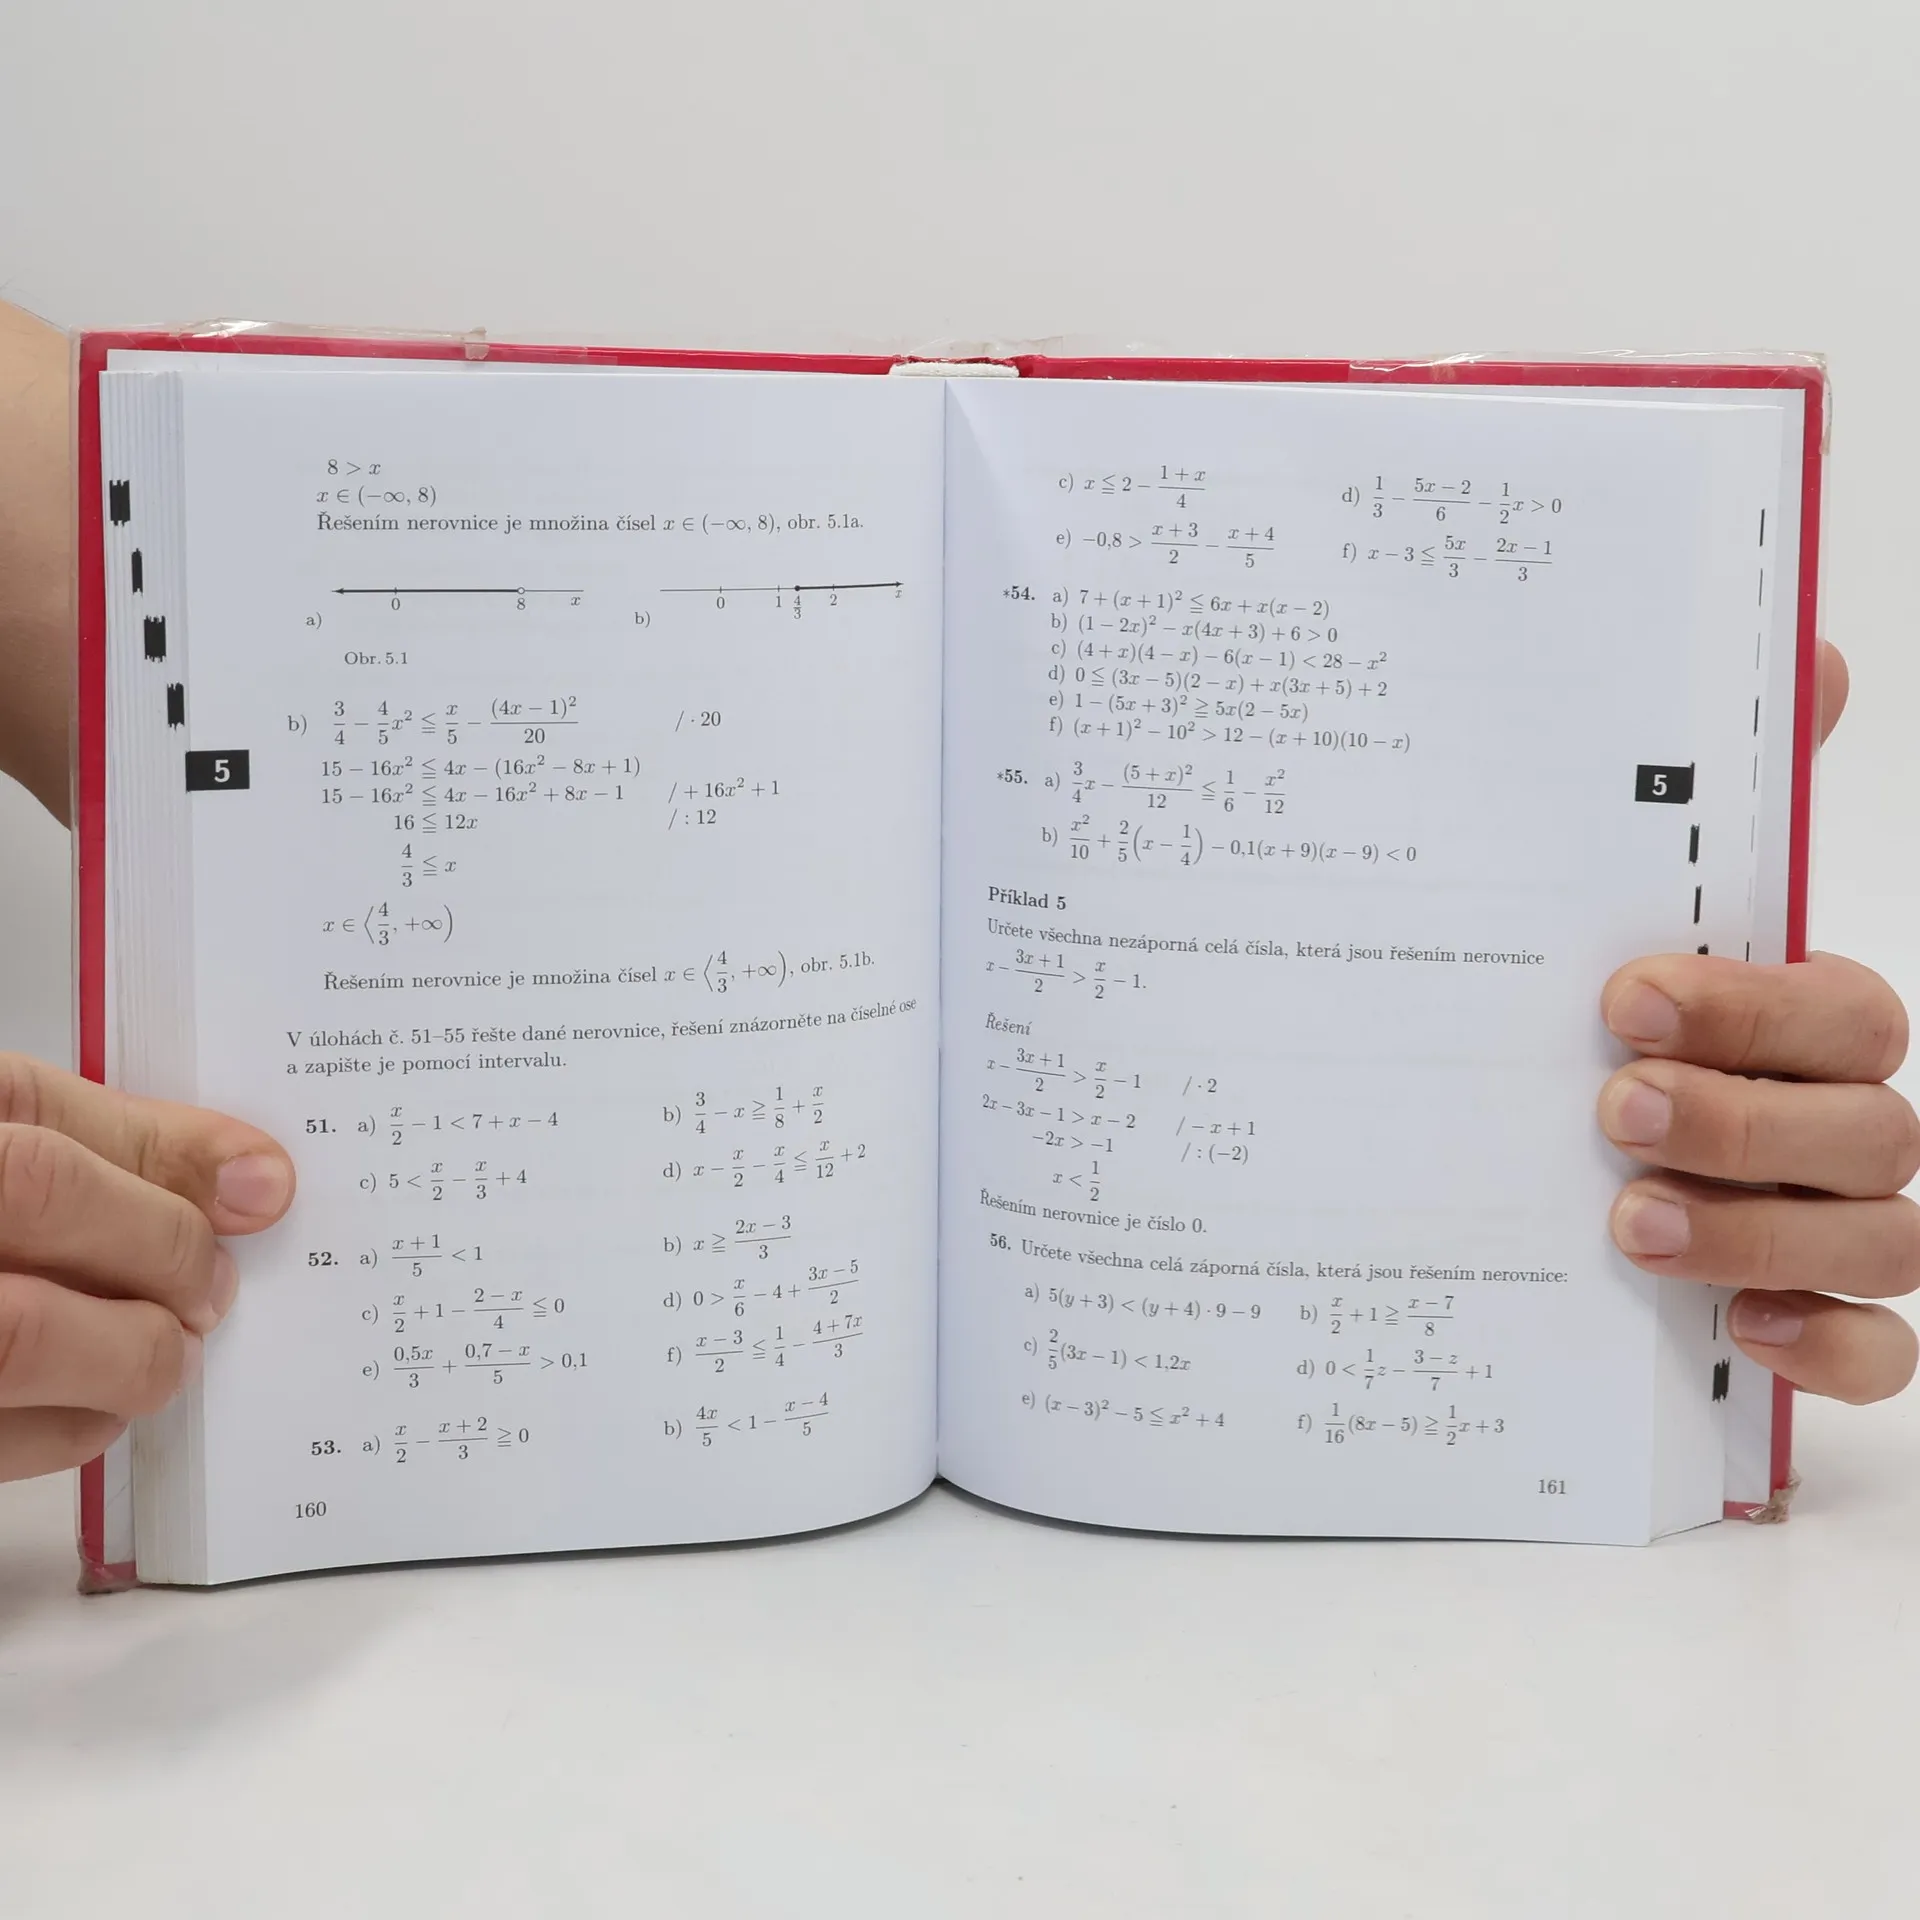 8 > x
x ∈ (−∞, 8)
Řešením nerovnice je množina čísel x ∈ (−∞, 8), obr. 5.1a.
a) 0 8 x
b) 0 1 4/3 2 x
Obr. 5.1
b) 3/4 − 4/5 x² ≦ x/5 − (4x − 1)²/20 / · 20
15 − 16x² ≦ 4x − (16x² − 8x + 1)
15 − 16x² ≦ 4x − 16x² + 8x − 1 / + 16x² + 1
16 ≦ 12x / : 12
4/3 ≦ x
x ∈ ⟨4/3, +∞)
Řešením nerovnice je množina čísel x ∈ ⟨4/3, +∞), obr. 5.1b.
V úlohách č. 51–55 řešte dané nerovnice, řešení znázorněte na číselné ose
a zapište je pomocí intervalu.
51. a) x/2 − 1 < 7 + x − 4 b) 3/4 − x ≧ 1/8 + x/2
c) 5 < x/2 − x/3 + 4 d) x − x/2 − x/4 ≦ x/12 + 2
52. a) (x + 1)/5 < 1 b) x ≧ (2x − 3)/3
c) x/2 + 1 − (2 − x)/4 ≦ 0 d) 0 > x/6 − 4 + (3x − 5)/2
e) 0,5x/3 + (0,7 − x)/5 > 0,1 f) (x − 3)/2 ≦ 1/4 − (4 + 7x)/3
53. a) x/2 − (x + 2)/3 ≧ 0 b) 4x/5 < 1 − (x − 4)/5
160
5
c) x ≦ 2 − (1 + x)/4 d) 1/3 − (5x − 2)/6 − 1/2 x > 0
e) −0,8 > (x + 3)/2 − (x + 4)/5 f) x − 3 ≦ 5x/3 − (2x − 1)/3
*54. a) 7 + (x + 1)² ≦ 6x + x(x − 2)
b) (1 − 2x)² − x(4x + 3) + 6 > 0
c) (4 + x)(4 − x) − 6(x − 1) < 28 − x²
d) 0 ≦ (3x − 5)(2 − x) + x(3x + 5) + 2
e) 1 − (5x + 3)² ≧ 5x(2 − 5x)
f) (x + 1)² − 10² > 12 − (x + 10)(10 − x)
*55. a) 3/4 x − (5 + x)²/12 ≦ 1/6 − x²/12
b) x²/10 + 2/5 (x − 1/4) − 0,1(x + 9)(x − 9) < 0
Příklad 5
Určete všechna nezáporná celá čísla, která jsou řešením nerovnice
x − (3x + 1)/2 > x/2 − 1.
Řešení
x − (3x + 1)/2 > x/2 − 1 / · 2
2x − 3x − 1 > x − 2 / − x + 1
−2x > −1 / : (−2)
x < 1/2
Řešením nerovnice je číslo 0.
56. Určete všechna celá záporná čísla, která jsou řešením nerovnice:
a) 5(y + 3) < (y + 4) · 9 − 9 b) x/2 + 1 ≧ (x − 7)/8
c) 2/5 (3x − 1) < 1,2x d) 0 < 1/7 z − (3 − z)/7 + 1
e) (x − 3)² − 5 ≦ x² + 4 f) 1/16 (8x − 5) ≧ 1/2 x + 3
161
5